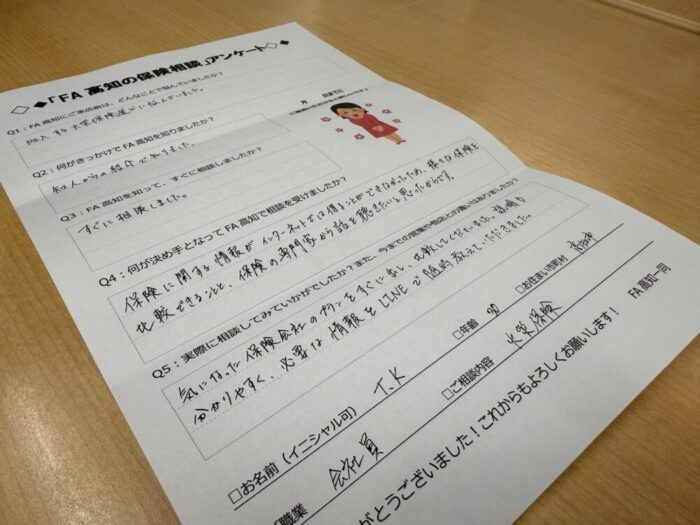 ◇◆「FA 高知の保険相談」アンケート◇◆
月 日までに
Q1：FA高知にご来店前は、どんなことで悩んでいましたか？
加入する火災保険選びに悩んでいました。
Q2：何がきっかけでFA高知を知りましたか？
知人からの紹介で知りました。
Q3：FA高知を知って、すぐに相談しましたか？
すぐに相談しました。
Q4：何が決め手となってFA高知で相談を受けましたか？
保険に関する情報がインターネットでは得ることができなかったため、様々な保険を
比較できることと、保険の専門家から話を聴きたいと思ったからです。
Q5：実際に相談してみていかがでしたか？また、今までの他店との違いはありましたか？
気になった保険会社のプランをすぐに出し、比較してくださいました。説明も
分かりやすく、必要な情報をLINEで随時教えていただきました。
□お名前（イニシャル可） T.K □年齢 30 □お住まい市町村 高知市
□職業 会社員 □ご相談内容 火災保険
がとうございました！これからもよろしくお願いします！
FA高知一同